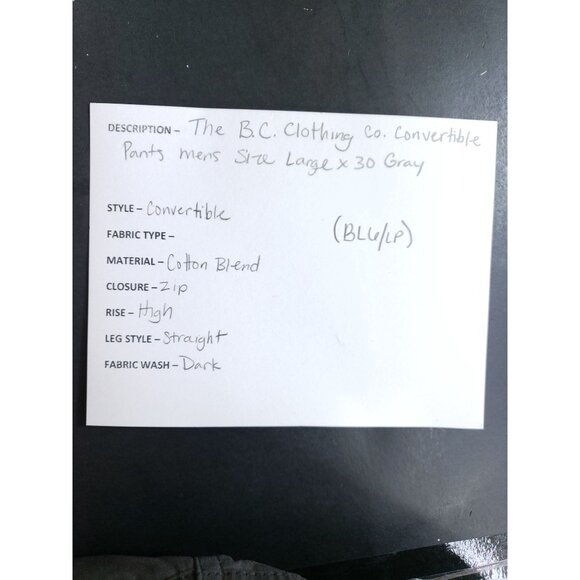 DESCRIPTION – The B.C. Clothing Co. Convertible
Pants mens Size Large x 30 Gray
STYLE – Convertible
FABRIC TYPE –
(BL6/LP)
MATERIAL – Cotton Blend
CLOSURE – Zip
RISE – High
LEG STYLE – Straight
FABRIC WASH – Dark